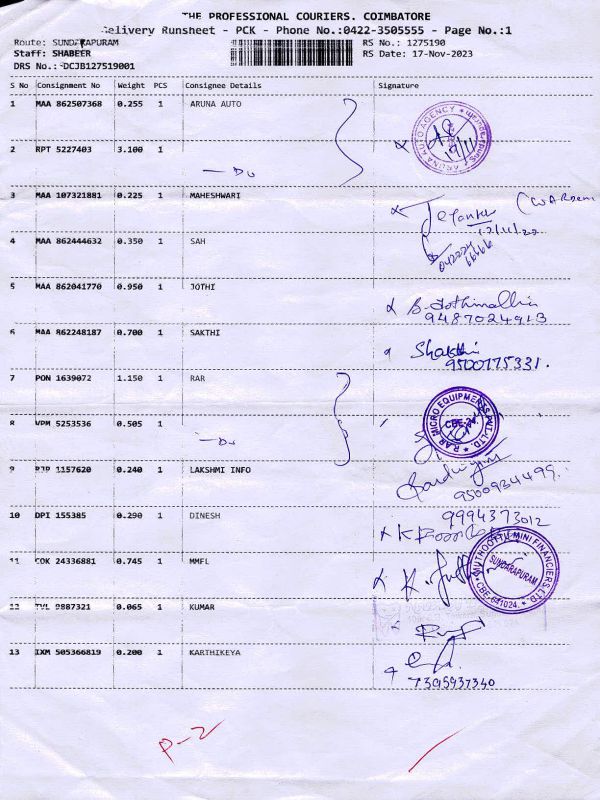 THE PROFESSIONAL COURIERS. COIMBATORE
Delivery Runsheet - PCK - Phone No.:0422-3505555 - Page No.:1
Route: SUNDARAPURAM RS No.: 1275190
Staff: SHABEER RS Date: 17-Nov-2023
DRS No.: DCJB127519001
S No Consignment No Weight PCS Consignee Details Signature
1 MAA 862507368 0.255 1 ARUNA AUTO
ARUNA AUTO AGENCY
2 RPT 5227403 3.100 1
-Do
3 MAA 107321881 0.225 1 MAHESHWARI
4 MAA 862444632 0.350 1 SAH
5 MAA 862041770 0.950 1 JOTHI
9487024913
6 MAA 862248187 0.700 1 SAKTHI
Shakthi
9500775331.
7 PON 1639072 1.150 1 RAR
RAR MICRO EQUIPMENTS PVT. LTD.
CBE-24.
8 VPM 5253536 0.505 1
-Do
9 PJP 1157620 0.240 1 LAKSHMI INFO
9500934499.
10 DPI 155385 0.290 1 DINESH
9994373012
11 COK 24336881 0.745 1 MMFL
MUTHOOTTU MINI FINANCIERS LTD
SUNDARAPURAM
CBE-641024
12 TVL 9887321 0.065 1 KUMAR
13 IXM 505366819 0.200 1 KARTHIKEYA
7395937340
P-2